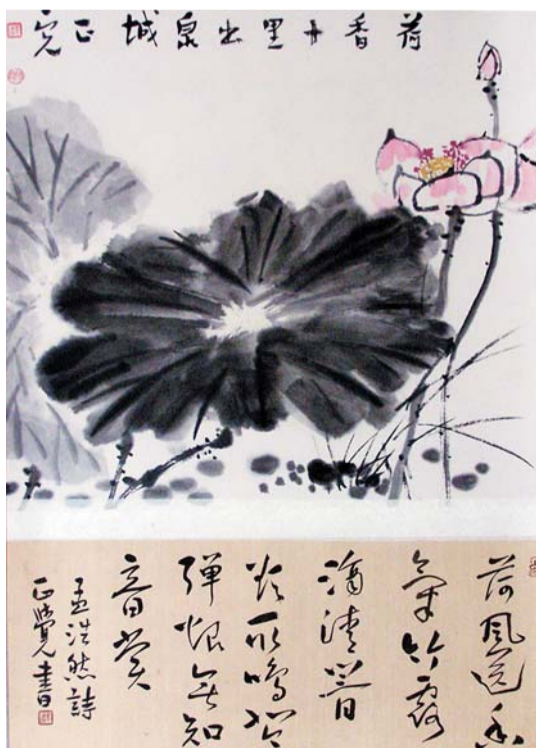 荷香里出泉城正觉
荷風送香
氣竹露
滴清響
欲取鳴琴
彈恨無知
音賞
孟浩然詩
正覺書